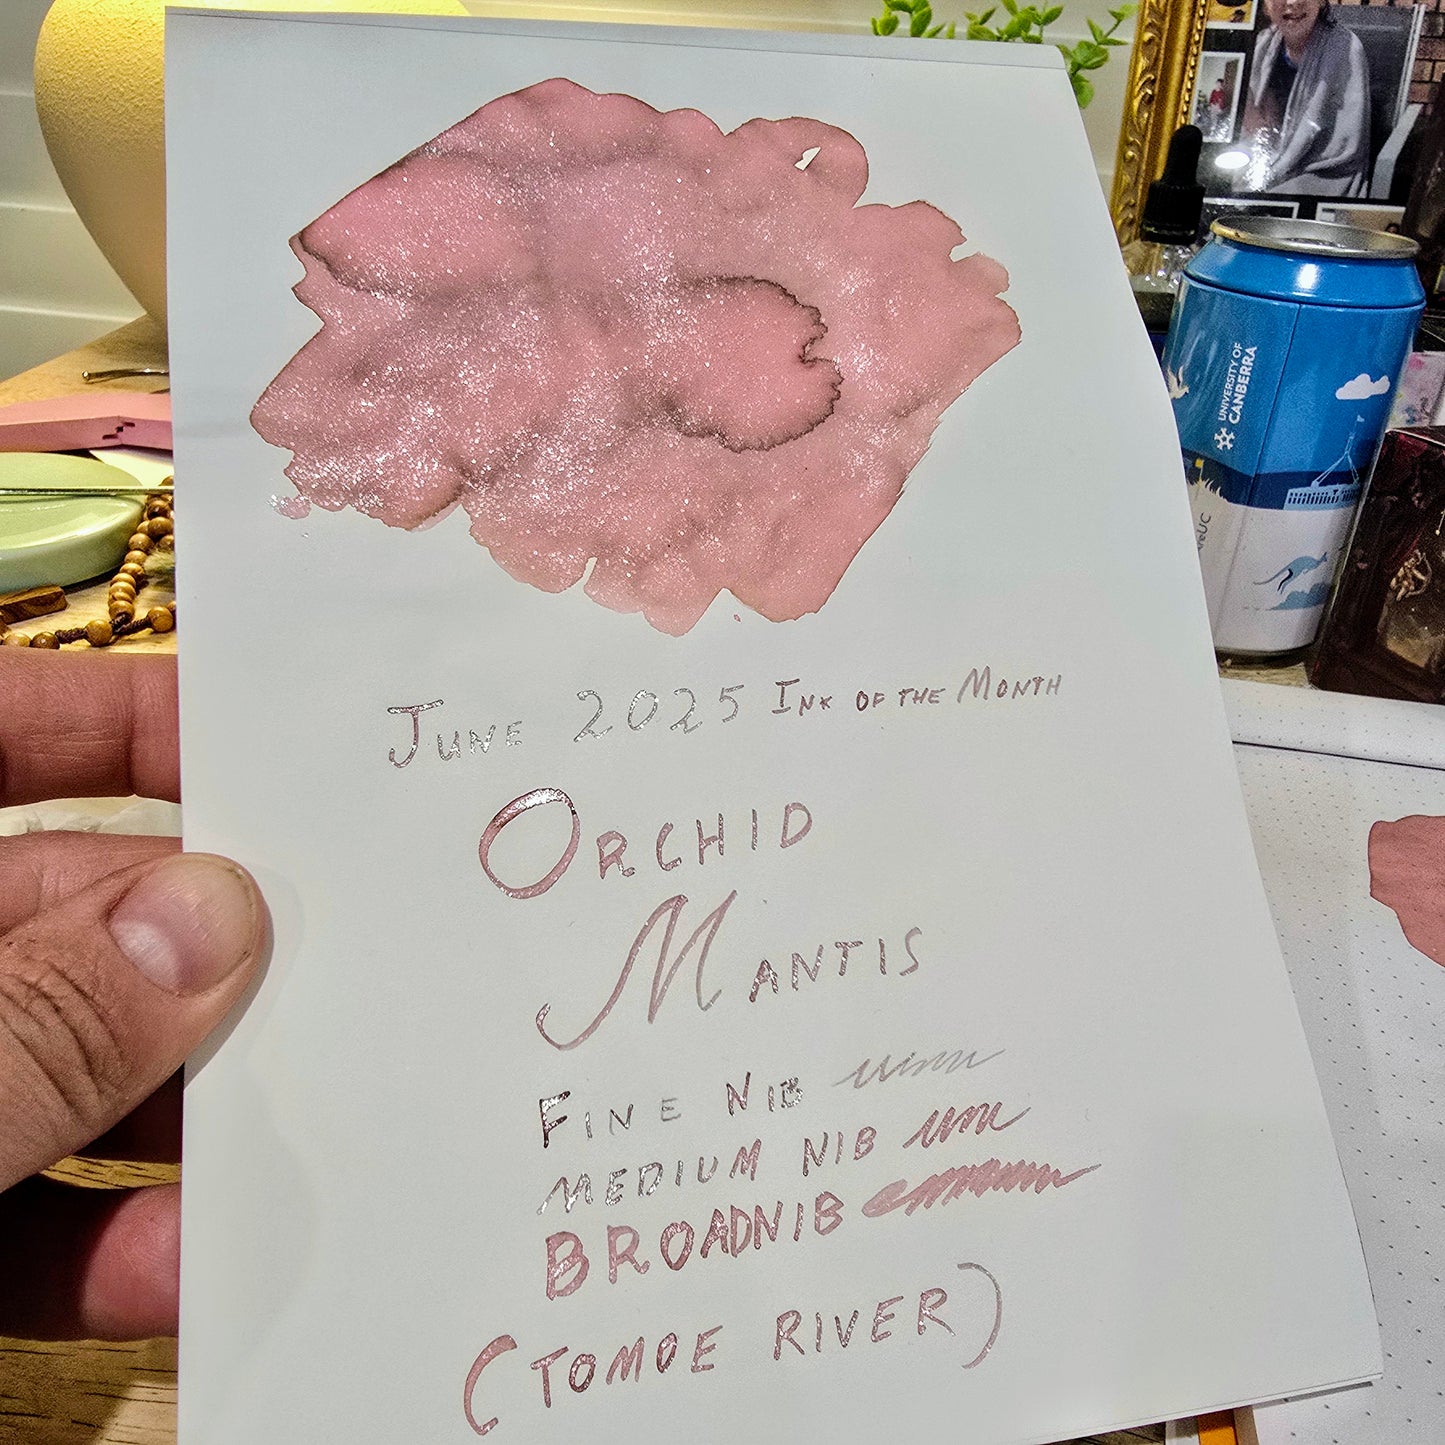 JUNE 2025 INK OF THE MONTH
ORCHID
MANTIS
FINE NIB
MEDIUM NIB
BROADNIB
(TOMOE RIVER)
UNIVERSITY OF
CANBERRA